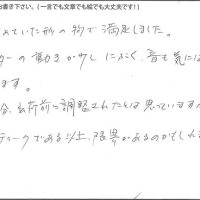 お書き下さい。(一言でも文章でも絵でも大丈夫です!)
めていた形の物で満足しました。
ターの動きが少しにぶく、音も気にな
ます。
分、出荷前に調整されたとは思っていますが
ティークである以上、限界があるのかもしれま